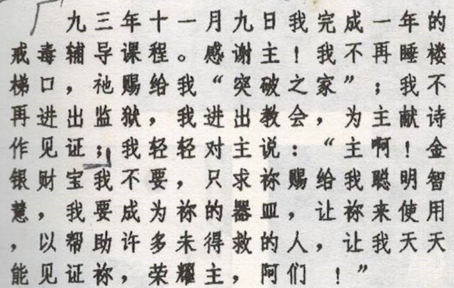 九三年十一月九日我完成一年的
戒毒辅导课程。感谢主！我不再睡楼
梯口，祂赐给我“突破之家”；我不
再进出监狱，我进出教会，为主献诗
作见证；我轻轻对主说：“主啊！金
银财宝我不要，只求祢赐给我聪明智
慧，我要成为祢的器皿，让祢来使用
，以帮助许多未得救的人，让我天天
能见证祢，荣耀主，阿们！”